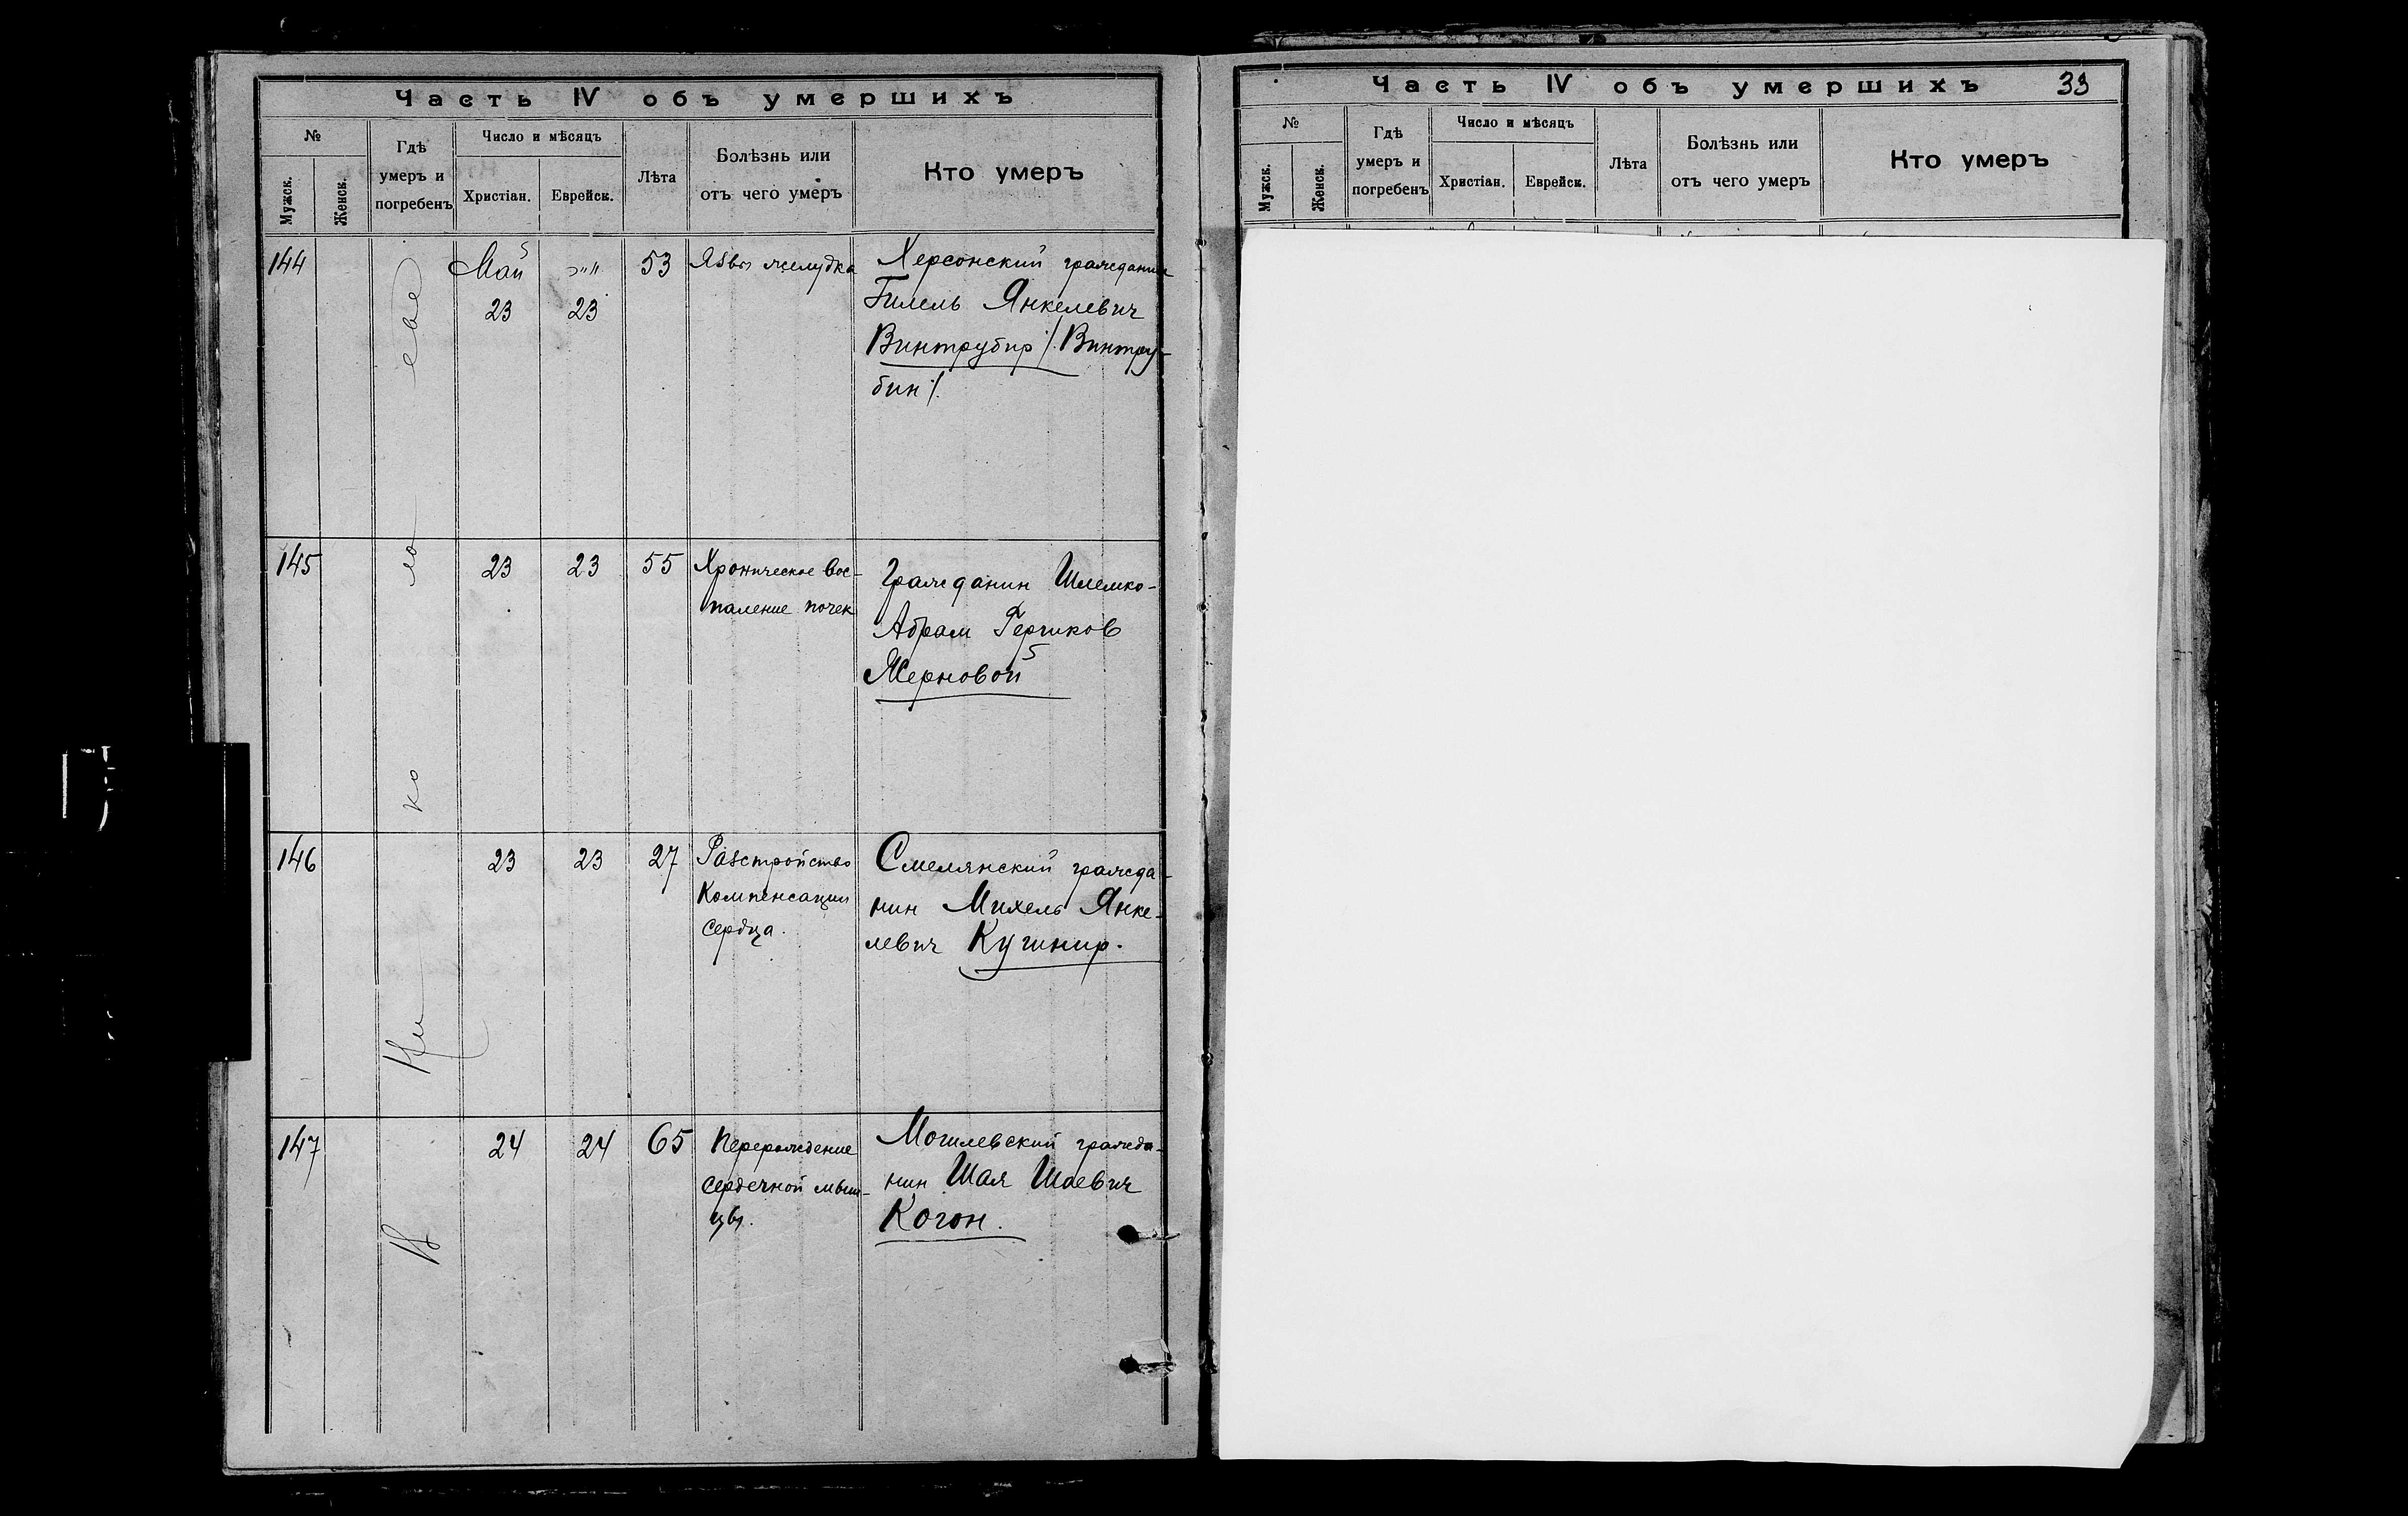 Часть IV объ умершихъ
№
Мужск.
Женск.
Гдѣ
умеръ и
погребенъ
Число и мѣсяцъ
Христіан.
Еврейск.
Лѣта
Болѣзнь или
отъ чего умеръ
Кто умеръ
144
Май
23
23
53
Язва желудка
Херсонский гражданин
Гилель Янкелевич
Винтрубир /. Винтру-
бин /.
145
23
23
55
Хроническое вос-
паление почек
Гражданин Шлемко-
Абрам Гершков
Жерновой
146
23
23
27
Разстройство
Компенсации
сердца.
Смелянский гражда-
нин Михель Янке-
левич Кушнир.
147
24
24
65
Перерождение
сердечной мыш-
цы.
Могилевский гражда-
нин Шая Шаевич
Когон.
В Николаеве
Часть IV объ умершихъ
33
№
Мужск.
Женск.
Гдѣ
умеръ и
погребенъ
Число и мѣсяцъ
Христіан.
Еврейск.
Лѣта
Болѣзнь или
отъ чего умеръ
Кто умеръ